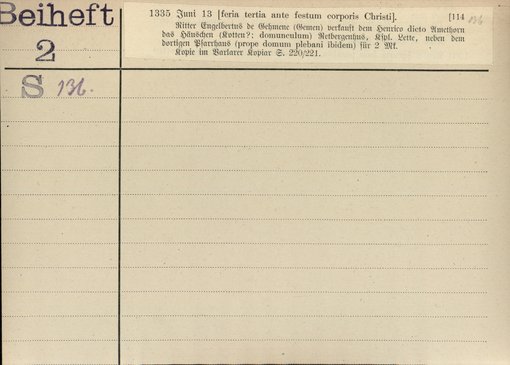 Beiheft
2
S 136.
1335 Juni 13 [feria tertia ante festum corporis Christi]. [114
136
Ritter Engelbertus de Gehmene (Gemen) verkauft dem Henrico dicto Amethorn
das Häuschen (Kotten?; domunculum) Retbergenhus, Kspl. Lette, neben dem
dortigen Pfarrhaus (prope domum plebani ibidem) für 2 Mk.
Kopie im Varlarer Kopiar S. 220/221.